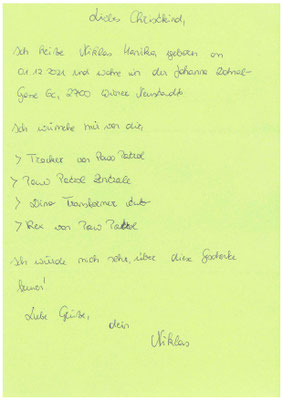 Liebes Christkind,
Ich heiße Niklas geboren am
01.12.2021 und wohne in der Johanna
6c, 2700 Wiener Neustadt.
Ich wünsche mir von dir,
> Tracker von Paw Patrol
> Paw Patrol Zentrale
> Dino Transformer Auto
> Rex von Paw Patrol
Ich würde mich sehr, über diese Geschenke
freuen!
Liebe Grüße,
dein
Niklas